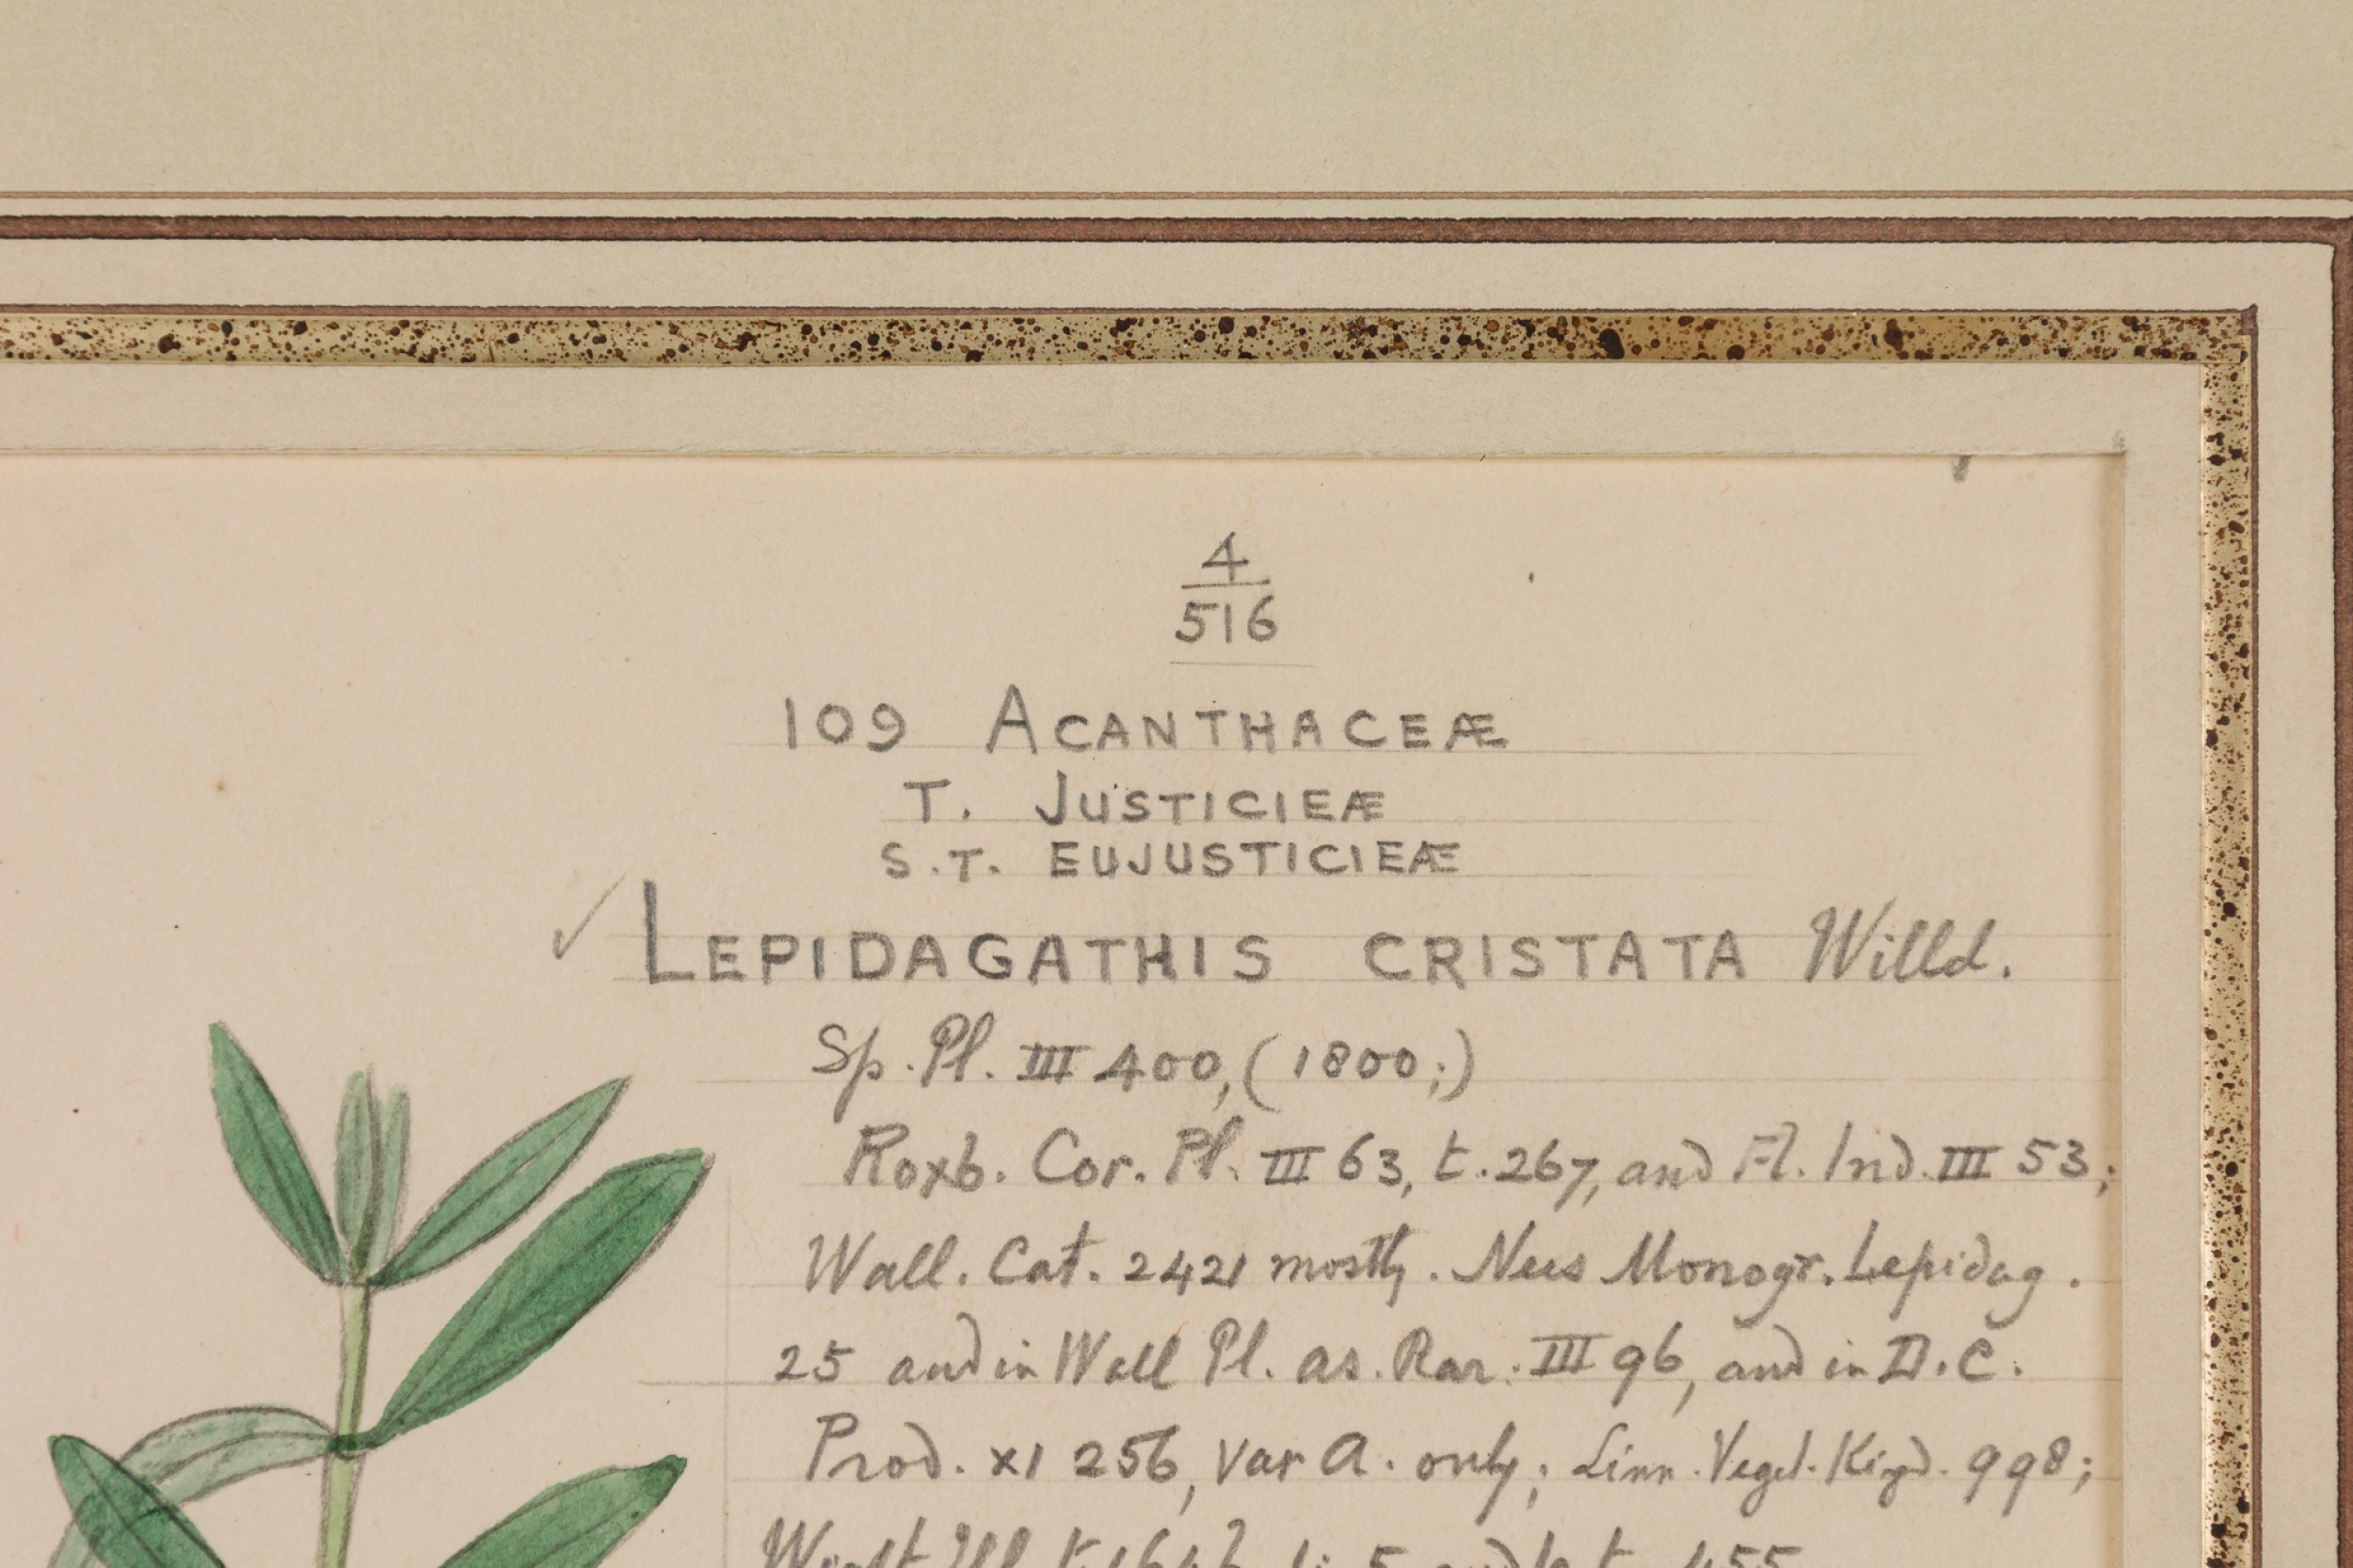 4
516
109 ACANTHACEÆ
T. JUSTICIEÆ
S.T. EUJUSTICIEÆ
✓ LEPIDAGATHIS CRISTATA Willd.
Sp. Pl. III 400, (1800;)
Roxb. Cor. Pl. III 63, t. 267, and Fl. Ind. III 53;
Wall. Cat. 2421 mostly. Nees Monogr. Lepidag.
25 and in Wall Pl. as. Rar. III 96, and in D.C.
Prod. XI 256, var A. only; Linn. Veget. Kingd. 998;
Wight Ill. t. 455